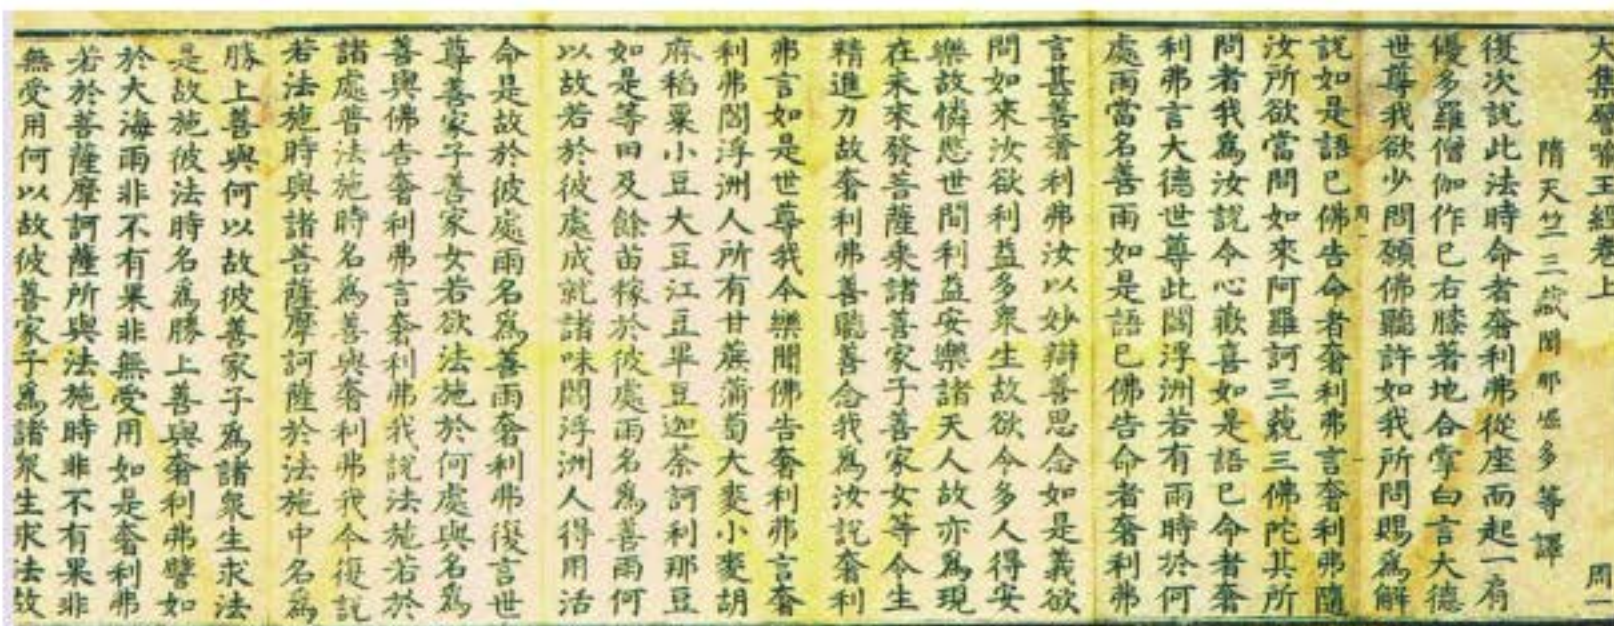 大集譬喻王經卷上 周一
隋天竺三藏闍那崛多等譯
復次說此法時命者奢利弗從座而起一肩
優多羅僧伽作已右膝著地合掌白言大德
世尊我欲少問願佛聽許如我所問賜為解
說如是語已佛告命者奢利弗言奢利弗隨
汝所欲當問如來阿羅訶三藐三佛陀其所
問者我為汝說令心歡喜如是語已命者奢
利弗言大德世尊此閻浮洲若有雨時於何
處雨當名善雨如是語已佛告命者奢利弗
言甚善奢利弗汝以妙辯善思念如是義欲
問如來汝欲利益多眾生故欲令多人得安
樂故憐愍世間利益安樂諸天人故亦為現
在未來發菩薩乘諸善家子善家女等令生
精進力故奢利弗善聽善念我為汝說奢利
弗言如是世尊我今樂聞佛告奢利弗言奢
利弗閻浮洲人所有甘蔗蒲萄大麥小麥胡
麻稻粟小豆大豆江豆畢豆迦荼訶利那豆
如是等田及餘苗稼於彼處雨名為善雨何
以故若於彼處成就諸味閻浮洲人得用活
命是故於彼處雨名為善雨奢利弗復言世
尊善家子善家女若欲法施於何處與名為
善與佛告奢利弗言奢利弗我說法施若於
諸處普法施時名為善與奢利弗我今復說
若法施時與諸菩薩摩訶薩於法施中名為
勝上善與何以故彼善家子為諸眾生求法
是故施彼法時名為勝上善與奢利弗譬如
於大海雨非不有果非無受用如是奢利弗
若於菩薩摩訶薩所與法施時非不有果非
無受用何以故彼善家子為諸眾生求法故